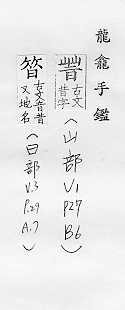 龍龕手鑑
古文昔字（山部 V1 P27 B6）
古文音昔又地名（日部 V.3 P.29 A.7）